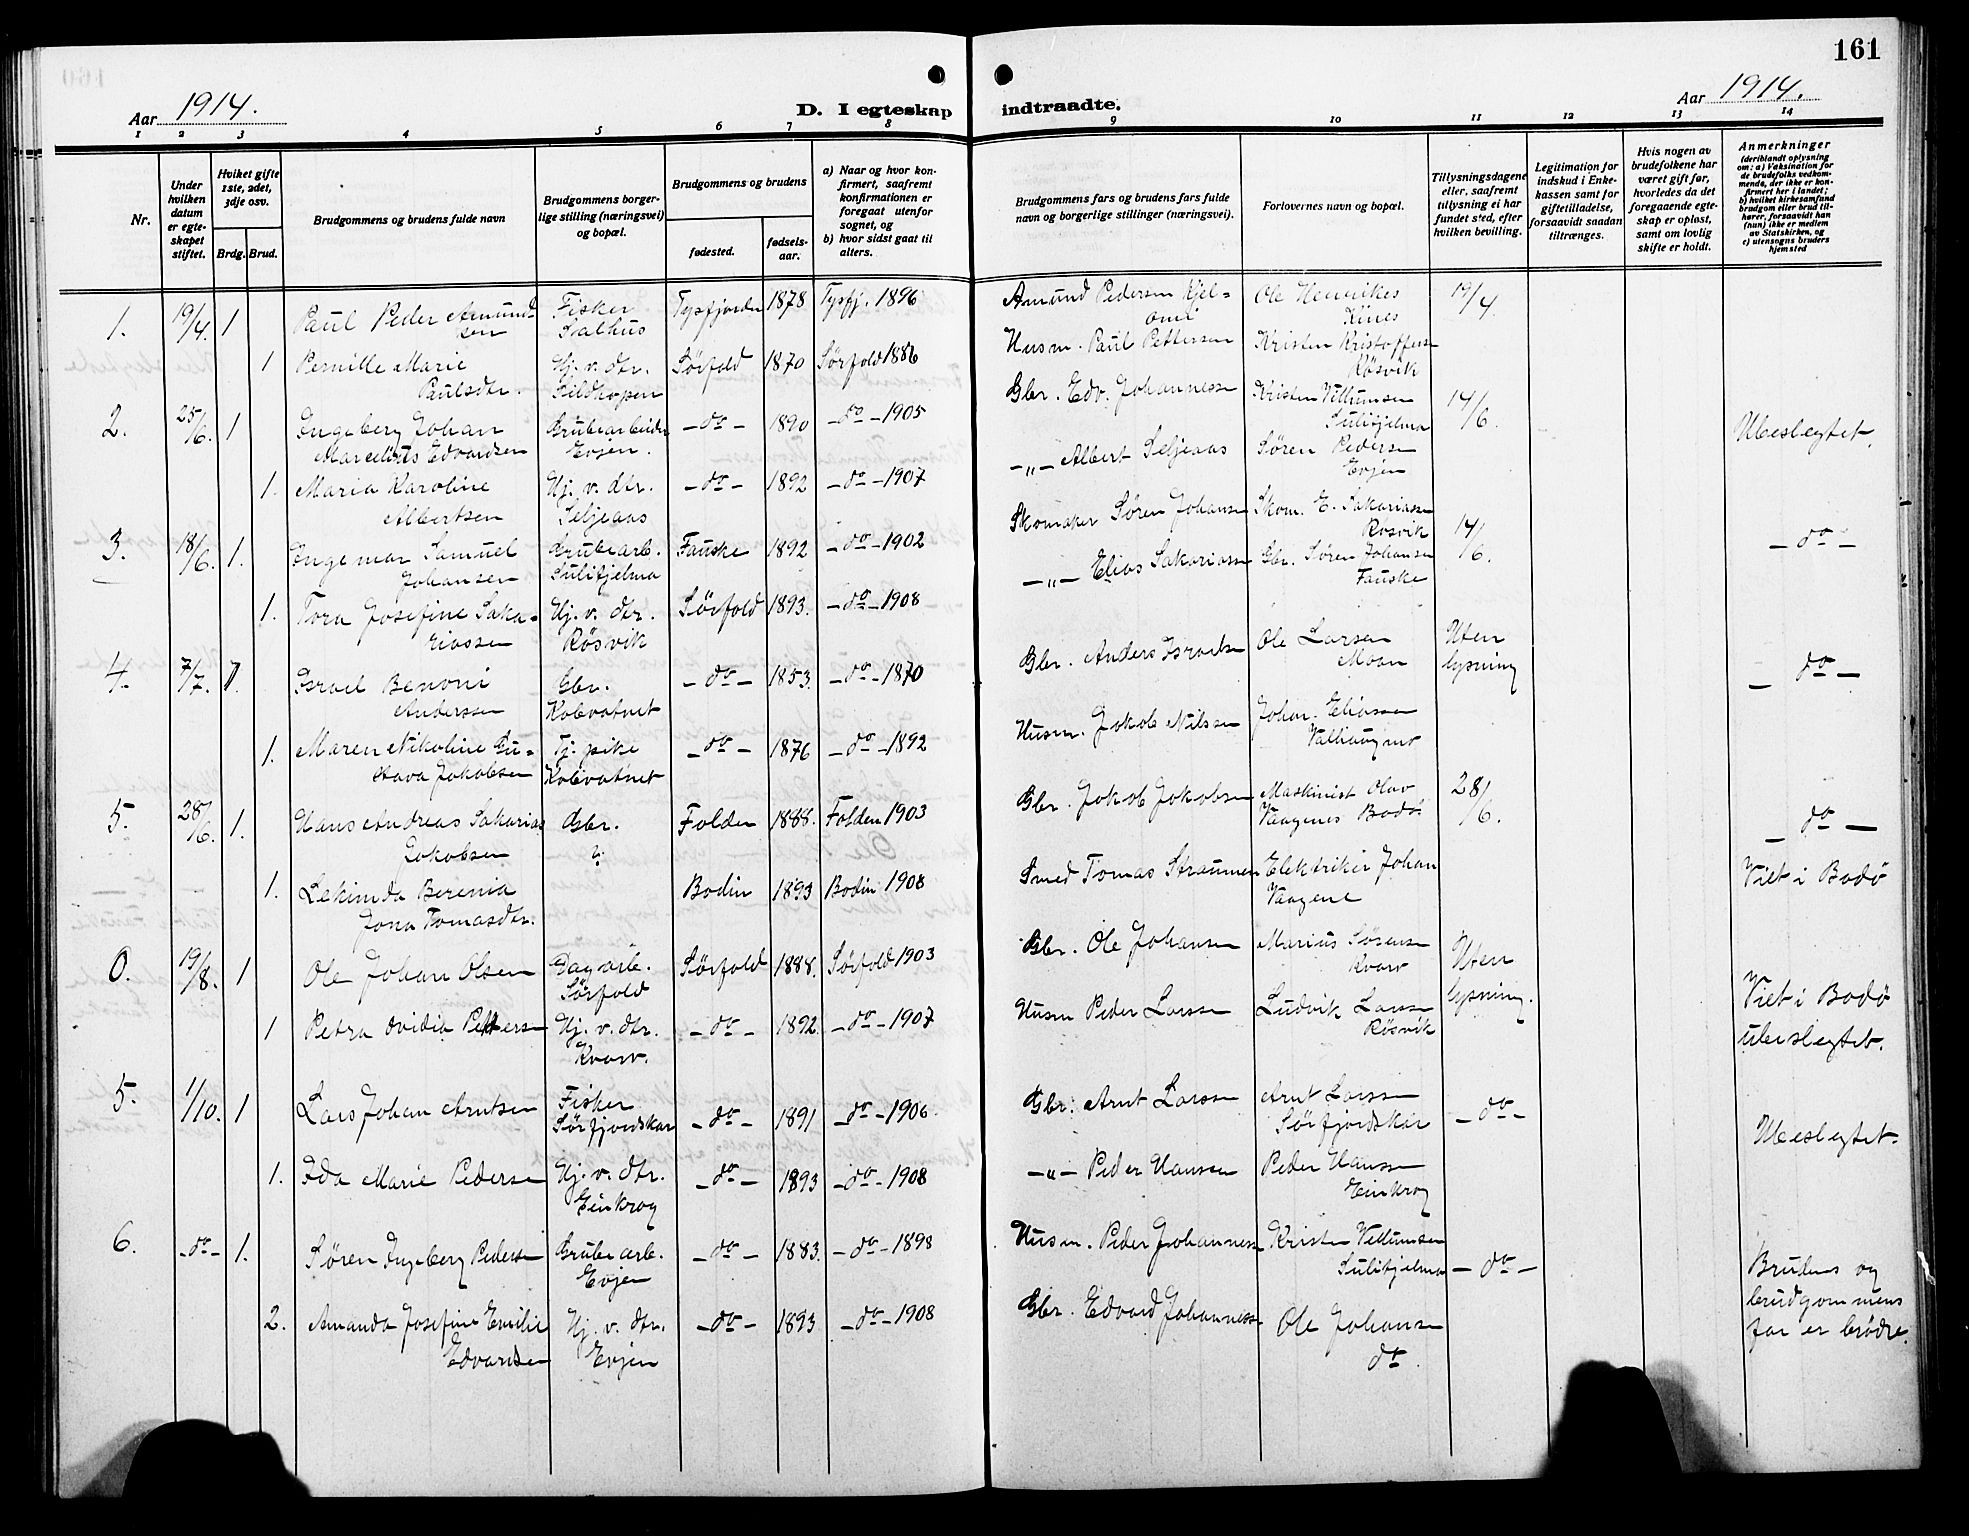 161
Aar 1914.
D. I egteskap indtraadte.
Aar 1914.
1 2 3 4 5 6 7 8 9 10 11 12 13 14
Nr.
Under hvilken datum er egteskapet stiftet.
Hviket gifte 1ste, 2det, 3dje osv.
Brdg. Brud.
Brudgommens og brudens fulde navn
Brudgommens borgerlige stilling (næringsvei) og bopæl.
Brudgommens og brudens
fødested.
fødselsaar.
a) Naar og hvor konfirmert, saafremt konfirmationen er foregaat utenfor sognet, og
b) hvor sidst gaat til alters.
Brudgommens fars og brudens fars fulde navn og borgerlige stillinger (næringsvei).
Forlovernes navn og bopæl.
Tillysningsdagene eller, saafremt tillysning ei har fundet sted, efter hvilken bevilling.
Legitimation for indskud i Enkekassen samt for giftetilladelse, forsaavidt saadan tiltrænges.
Hvis nogen av brudefolkene har været gift før, hvorledes da det foregaaende egteskap er opløst, samt om lovlig skifte er holdt.
Anmerkninger
(deriblandt oplysning om: a) Vaksination for de brudefolks vedkommende, der ikke er konfirmert her i landet;
b) hvilket kirkesamfund brudgom eller brud tilhører, forsaavidt han (hun) ikke er medlem av Statskirken, og
c) utensogns bruders hjemsted
1. 19/4. 1 Paul Peder Amundsen Fisker Salhus Tysfjorden 1878 Tysfj. 1896 Amund Pedersen Ole Henrikes 19/4.
1 Pernille Marie Paulsdtr. Hj. v. dtr. Sildhopen Sørfold 1870 Sørfold 1886 Husm. Paul Pettersen Kristen Kristoffersen Røsvik
2. 25/6. 1 Ingeberg Johan Marcelius Edvardsen Grubearbeider Evjen. -do- 1890 -do- 1905 Gbr. Edv. Johannessen Kristen Villumsen Sulitjelma 14/6. Ubeslegtet.
1. Maria Karoline Albertsen Hj. v. dtr. Seljeaas -do- 1892 -do- 1907 -"- Albert Seljeaas Søren Pedersen Evjen
3. 18/6. 1. Ingemar Samuel Johansen Grubearb. Sulitjelma Fauske 1892 -do- 1902 Skomaker Søren Johansen Skom. E. Sakariassen Rosvik 14/6. -do-
1. Tora Josefine Sakariassen Hj. v. dtr. Røsvik Sørfold 1893. -do- 1908 -"- Elias Sakariassen Gbr. Søren Johansen Fauske
4. 7/7. 1. Israel Benoni Anderssen Gbr. Kobvatnet -do- 1853. -do- 1870 Gbr. Anders Israelsen Ole Larsen Moan Uten lysning -do-
1. Maren Nikoline Gustava Jakobsen Tj. pike Kobvatnet -do- 1876 -do- 1892 Husm. Jakob Nilssen Johan Eliassen
5. 28/6. 1. Hans Andreas Sakarias Jakobsen Gbr. Folden 1888. Folden 1903 Gbr. Jakob Jakobsen Maskinist Olav Vaagenes Bodø. 28/6. -do-
1. Lekinda Berenia Jona Tomasdtr. Bodin 1893 Bodin 1908 Smed Tomas Straumen Elektriker Johan Vaagene Viet i Bodø
0. 19/8. 1 Ole Johan Olsen Dagarb. Sørfold Sørfold 1888. Sørfold 1903 Gbr. Ole Johansen Marius Sørensen Kvarv Uten lysning. Viet i Bodø ubeslegtet.
1 Petra Ovidia Pettersen Hj. v. dtr. Kvarv. -do- 1892. -do- 1907 Husm Peder Larsen Ludvik Larsen Røsvik
5. 1/10. 1 Lars Johan Arntsen Fisker Sørfjordskar -do- 1891 -do- 1906. Gbr. Arnt Larssen Arnt Larssen Sørfjordskar -do- Ubeslegtet.
1. Ida Marie Pedersen Hj. v. dtr. Einkrog -do- 1893 -do- 1908 -"- Peder Hanssen Peder Hanssen Einkrog
6. -do- 1. Søren Ingeberg Pedersen Grubearb. Evjen -do- 1883. -do- 1898 Husm. Peder Johannessen Kristen Villumsen Sulitjelma -do- Brudens og brudgommens far er brødre.
2. Amanda Josefine Emilie Edvardsen Hj. v. dtr. Evjen -do- 1893 -do- 1908 Gbr. Edvard Johannessen Ole Johansen do.